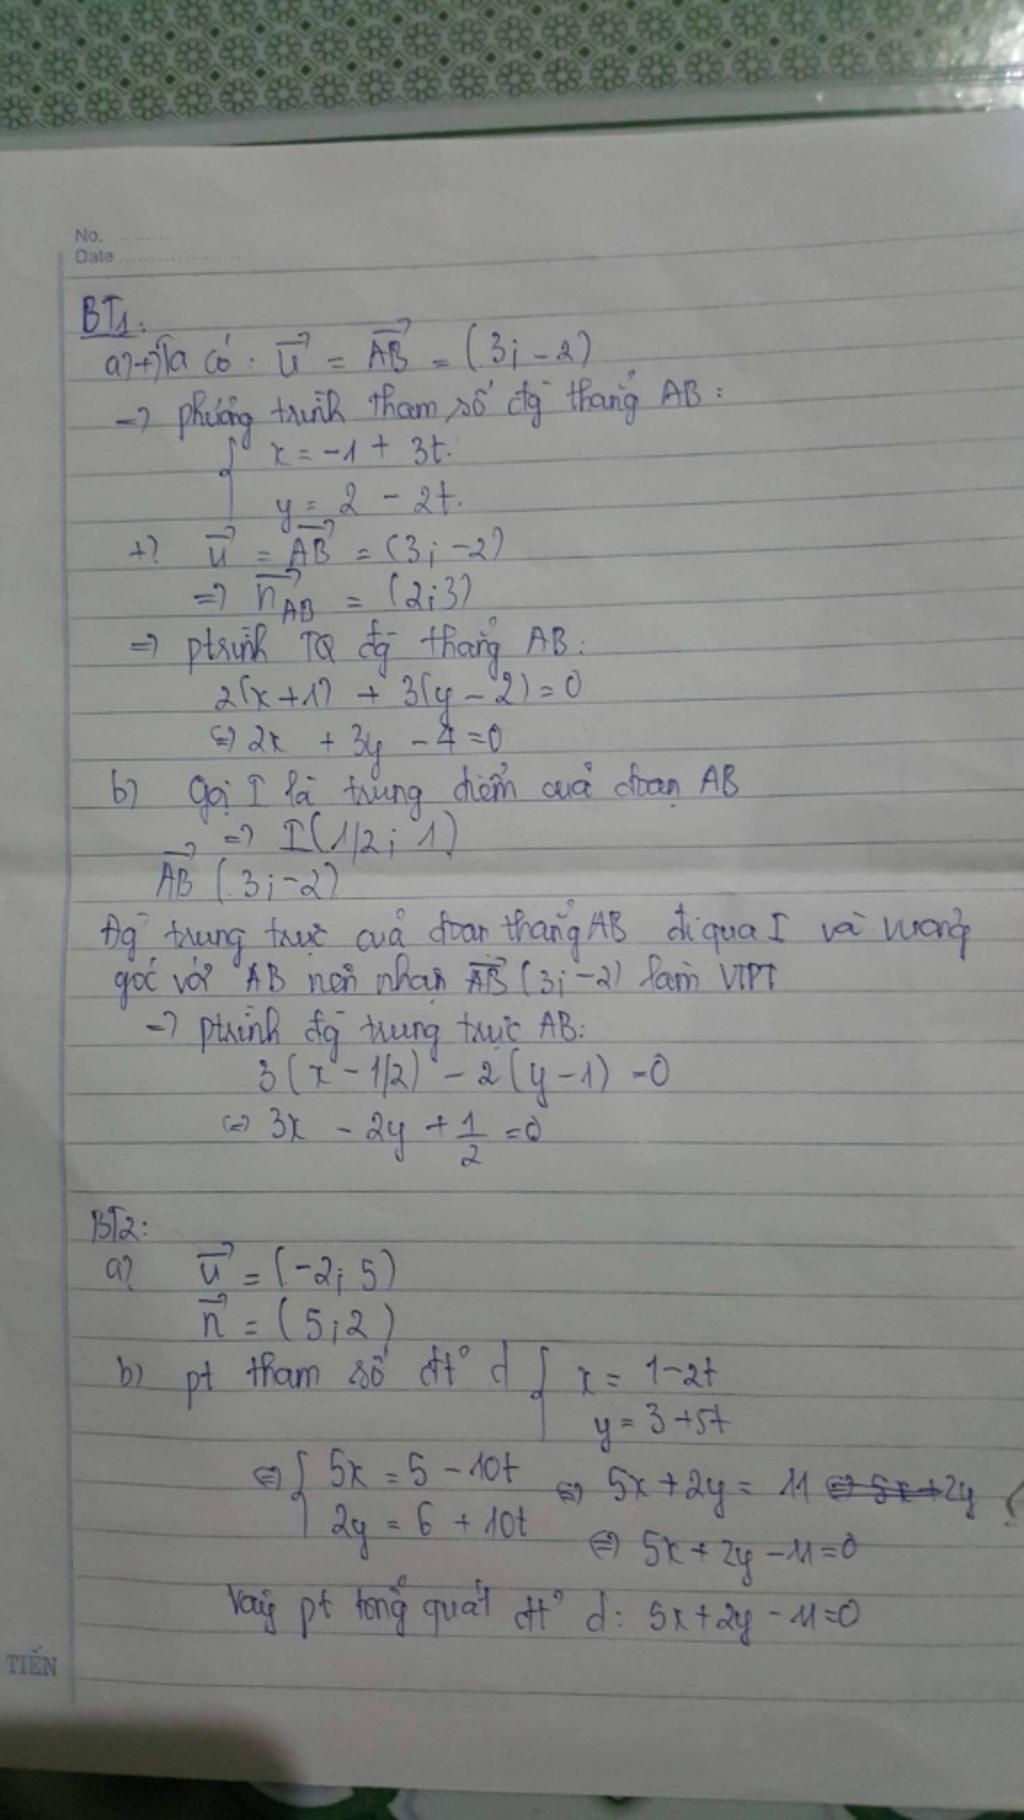 No. ........
Date ..................
BT1:
a) +) Ta có: u⃗ = AB⃗ = (3; -2)
=> phương trình tham số đg thẳng AB:
{ x = -1 + 3t.
y = 2 - 2t.
+) u⃗ = AB⃗ = (3; -2)
=> n⃗AB = (2; 3)
=> ptrình TQ đg thẳng AB:
2(x+1) + 3(y-2) = 0
<=> 2x + 3y - 4 = 0
b) Gọi I là trung điểm của đoạn AB
=> I(1/2; 1)
AB⃗ (3; -2)
Đg trung trực của đoạn thẳng AB đi qua I và vuông
góc với AB nên nhận AB⃗ (3; -2) làm VTPT
=> ptrình đg trung trực AB:
3(x - 1/2) - 2(y - 1) = 0
<=> 3x - 2y + 1/2 = 0
BT2:
a) u⃗ = (-2; 5)
n⃗ = (5; 2)
b) pt tham số đt° d { x = 1 - 2t
y = 3 + 5t
<=> { 5x = 5 - 10t <=> 5x + 2y = 11 <=> 5x + 2y
2y = 6 + 10t <=> 5x + 2y - 11 = 0
Vậy pt tổng quát đt° d: 5x + 2y - 11 = 0
TIẾN